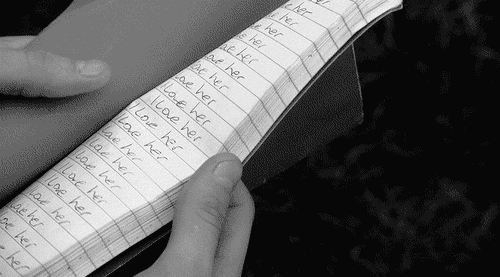 her
her
her
Love her
Love her
Love her
Love her
I Love her
I Love her
I Love her
I Love her
I Love her
I Love her
Love her
Love her
Love her